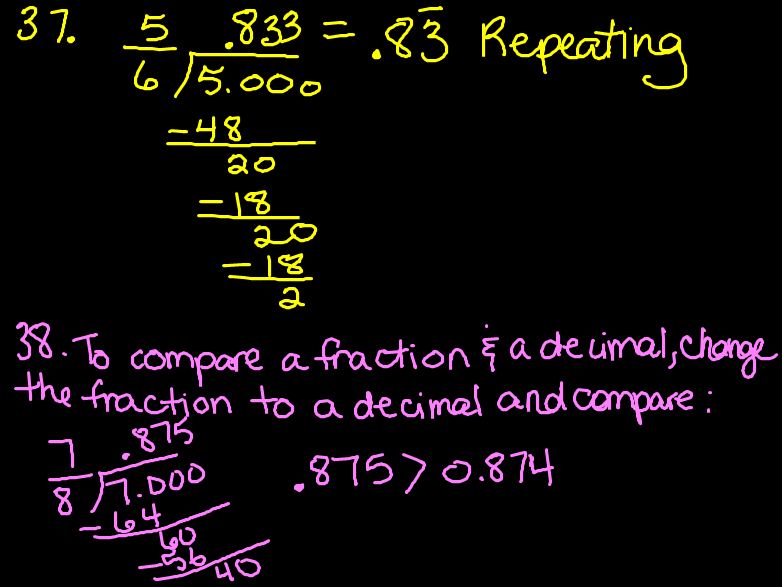 37. 5/6 .833 = .83̅ Repeating
6)5.000
-48
20
-18
20
-18
2
38. To compare a fraction & a decimal, change
the fraction to a decimal and compare:
7/8 .875
8)7.000 .875 > 0.874
-64
60
-56
40